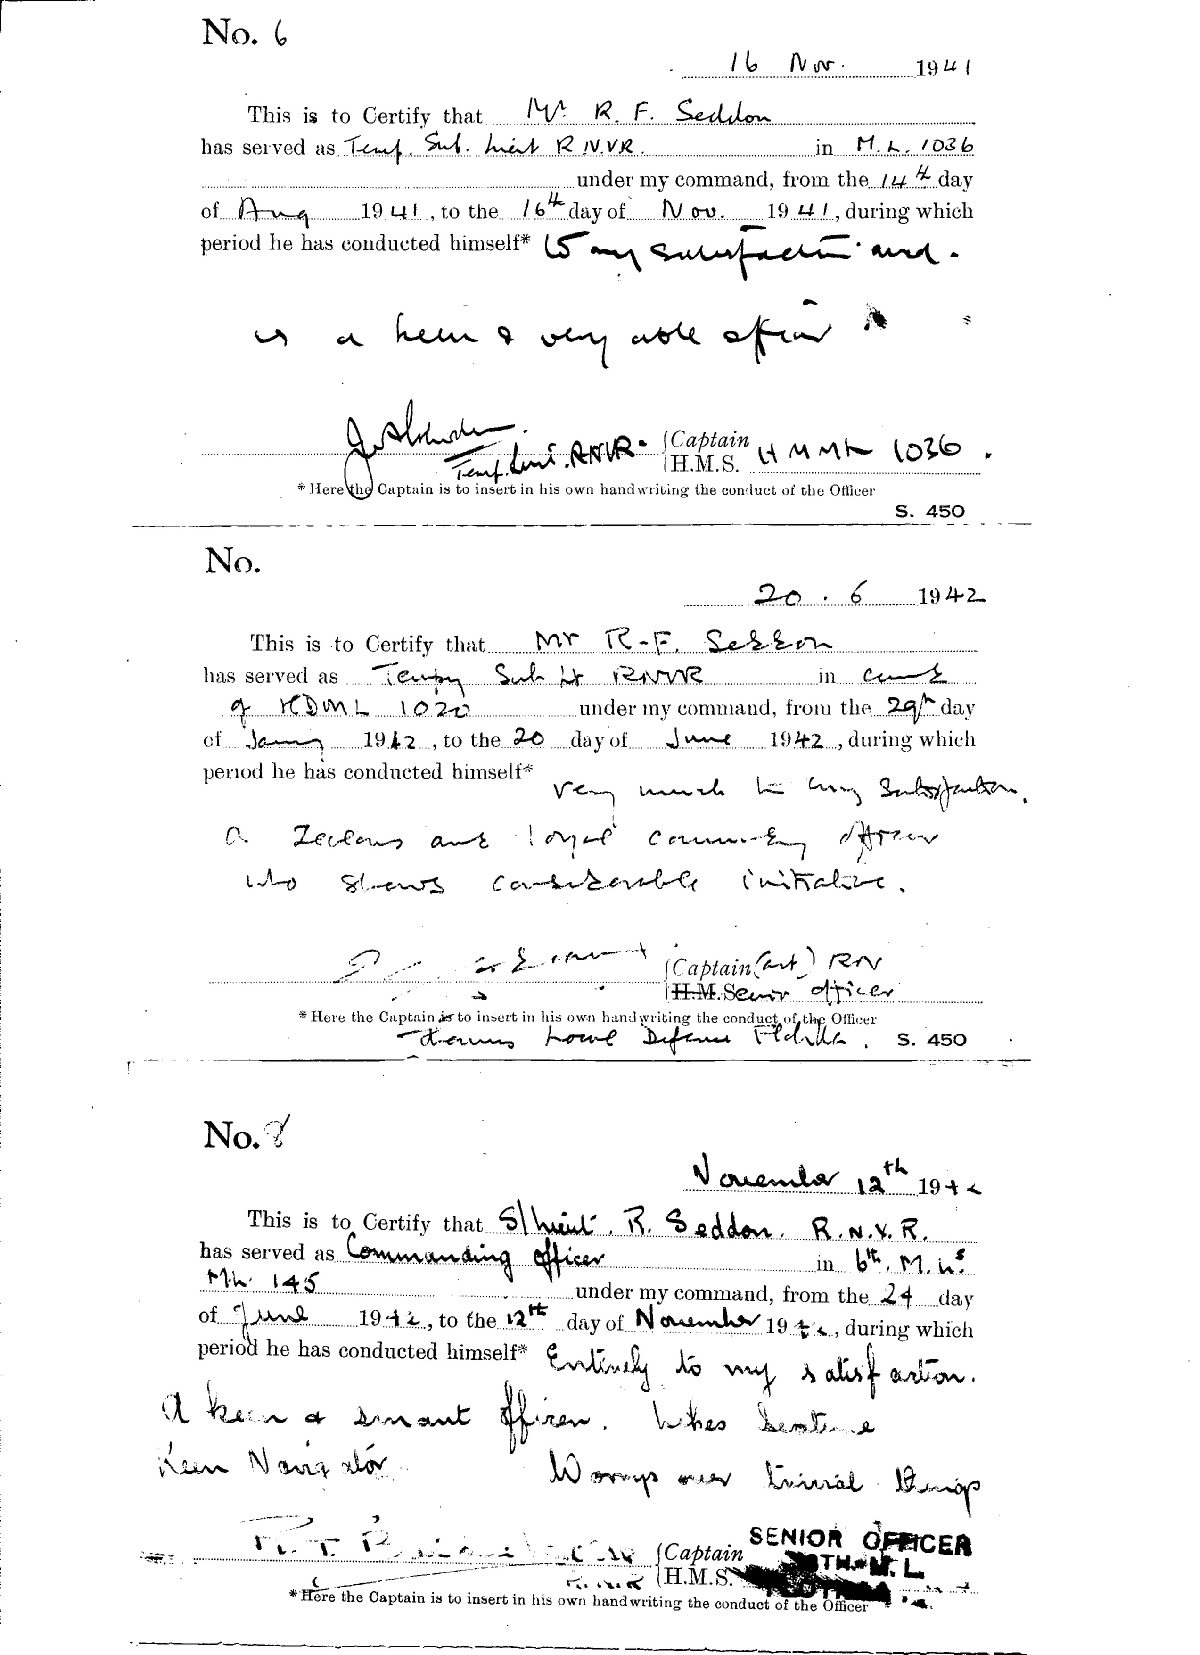 No. 6
16 Nov. 1941
This is to Certify that Mr. R. F. Seddon
has served as Temp. Sub. Lieut R.N.V.R. in M.L. 1036
under my command, from the 14th day
of Aug 1941, to the 16th day of Nov. 1941, during which
period he has conducted himself* to my satisfaction and
is a keen & very able officer
Temp. Lieut. RNVR. Captain
H.M.S. HMML 1036.
* Here the Captain is to insert in his own handwriting the conduct of the Officer
S. 450
No.
20.6 1942
This is to Certify that Mr R-F. Seddon
has served as Tempy Sub Lt RNVR in command
of HDML 1020 under my command, from the 29th day
of January 1942, to the 20 day of June 1942, during which
period he has conducted himself* very much to my satisfaction.
A zealous and loyal commanding officer
who shows considerable initiative.
Captain RN
H.M. Senior Officer
* Here the Captain is to insert in his own handwriting the conduct of the Officer
Local Defence Flotilla. S. 450
No. 8
November 12th 1942
This is to Certify that S/Lieut. R. Seddon. R.N.V.R.
has served as Commanding Officer in 6th. M.L's.
ML 145 under my command, from the 24 day
of June 1942, to the 12th day of November 1942, during which
period he has conducted himself* Entirely to my satisfaction.
A keen & smart officer. Likes
Keen Navigator Worrys over trivial things
Captain SENIOR OFFICER
H.M.S. TH. M.L
*Here the Captain is to insert in his own handwriting the conduct of the Officer